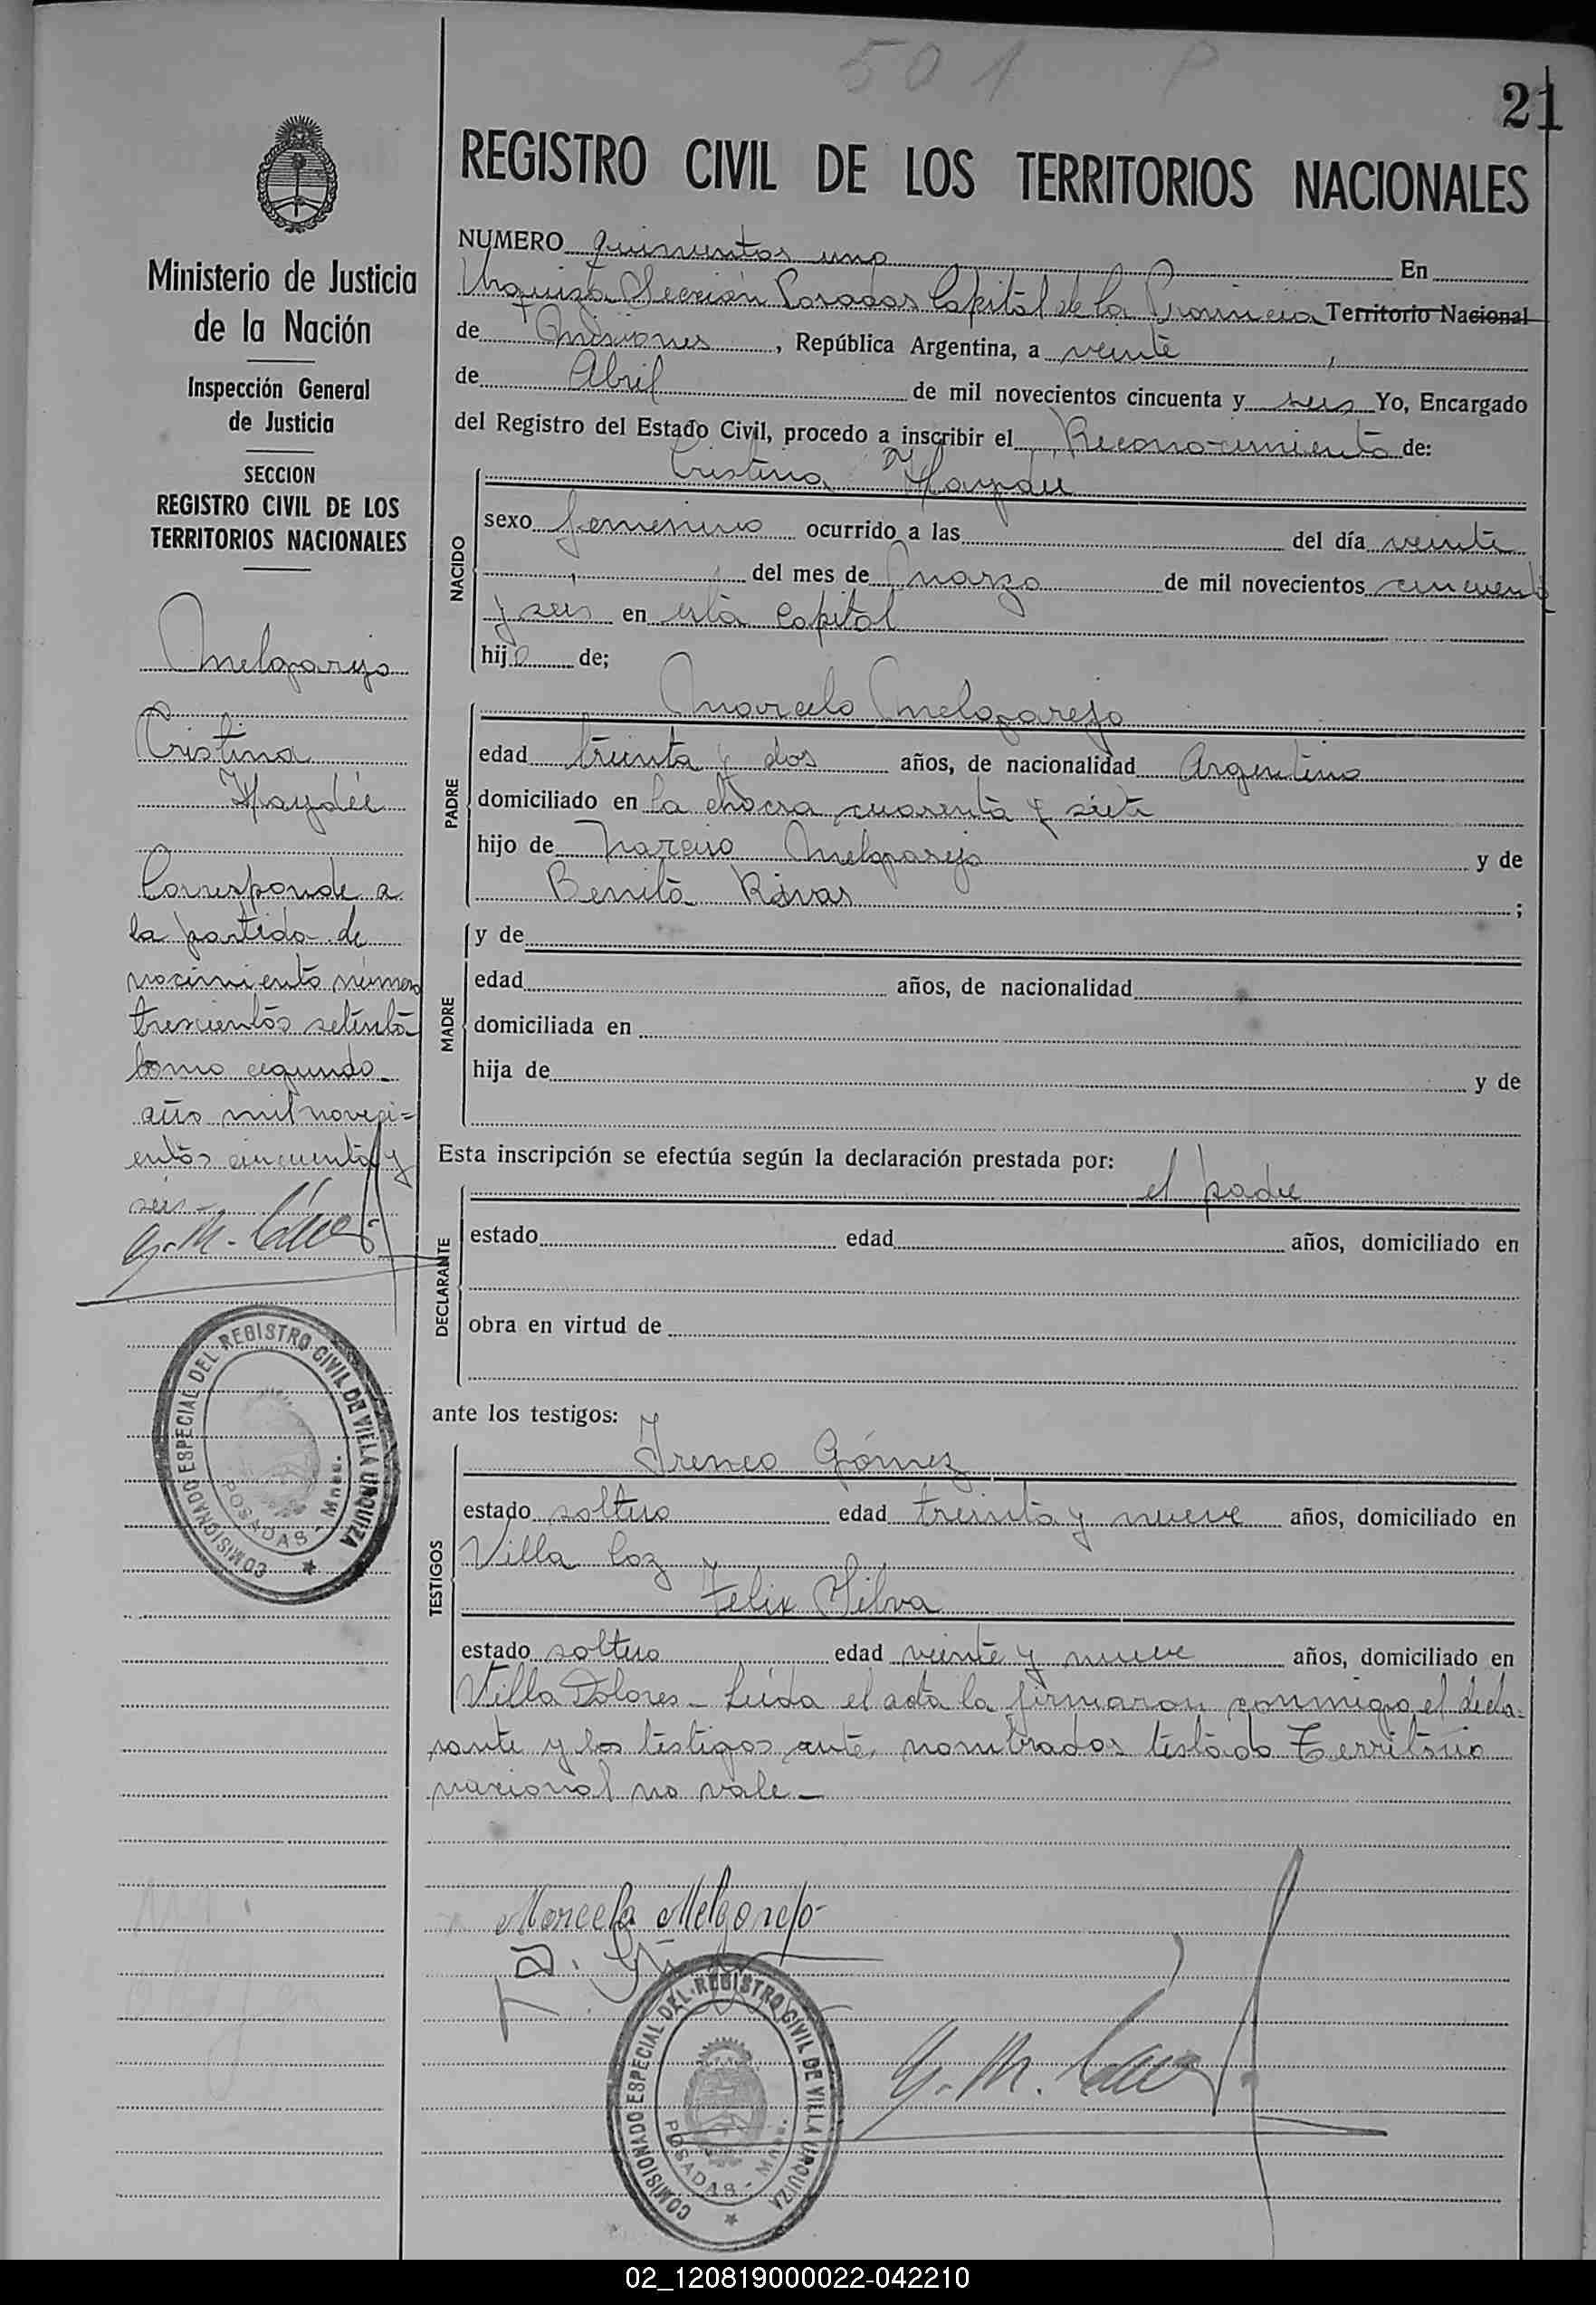 501 P
21
REGISTRO CIVIL DE LOS TERRITORIOS NACIONALES
Ministerio de Justicia
de la Nación
Inspección General
de Justicia
SECCION
REGISTRO CIVIL DE LOS
TERRITORIOS NACIONALES
Melgarejo
Cristina
Haydée
Corresponde a
la partida de
nacimiento número
trescientos setenta
tomo segundo
año mil noveci=
entos cincuenta y
seis
COMISIONADO ESPECIAL DEL REGISTRO CIVIL DE VILLA URQUIZA
POSADAS - Mnes.
NUMERO quinientos uno En
Urquiza Sección Posadas Capital de la Provincia Territorio Nacional
de Misiones, República Argentina, a veinte
de Abril de mil novecientos cincuenta y seis Yo, Encargado
del Registro del Estado Civil, procedo a inscribir el Reconocimiento de:
Cristina Haydée
NACIDO
sexo femenino ocurrido a las del día veinte
del mes de marzo de mil novecientos cincuenta
y seis en esta Capital
hija de;
PADRE
Marcelo Melgarejo
edad treinta y dos años, de nacionalidad Argentino
domiciliado en la chacra cuarenta y siete
hijo de Narciso Melgarejo y de
Benita Rivas ;
MADRE
y de
edad años, de nacionalidad
domiciliada en
hija de y de
Esta inscripción se efectúa según la declaración prestada por:
el padre
DECLARANTE
estado edad años, domiciliado en
obra en virtud de
ante los testigos:
TESTIGOS
Ireneo Gómez
estado soltero edad treinta y nueve años, domiciliado en
Villa Coz y
Felix Silva
estado soltero edad veinte y nueve años, domiciliado en
Villa Dolores - Leída el acta la firmaron conmigo el decla-
rante y los testigos ante nombrados testado Territorio
nacional no vale -
Marcelo Melgarejo
COMISIONADO ESPECIAL DEL REGISTRO CIVIL DE VILLA URQUIZA
POSADAS - Mnes.
02_120819000022-042210